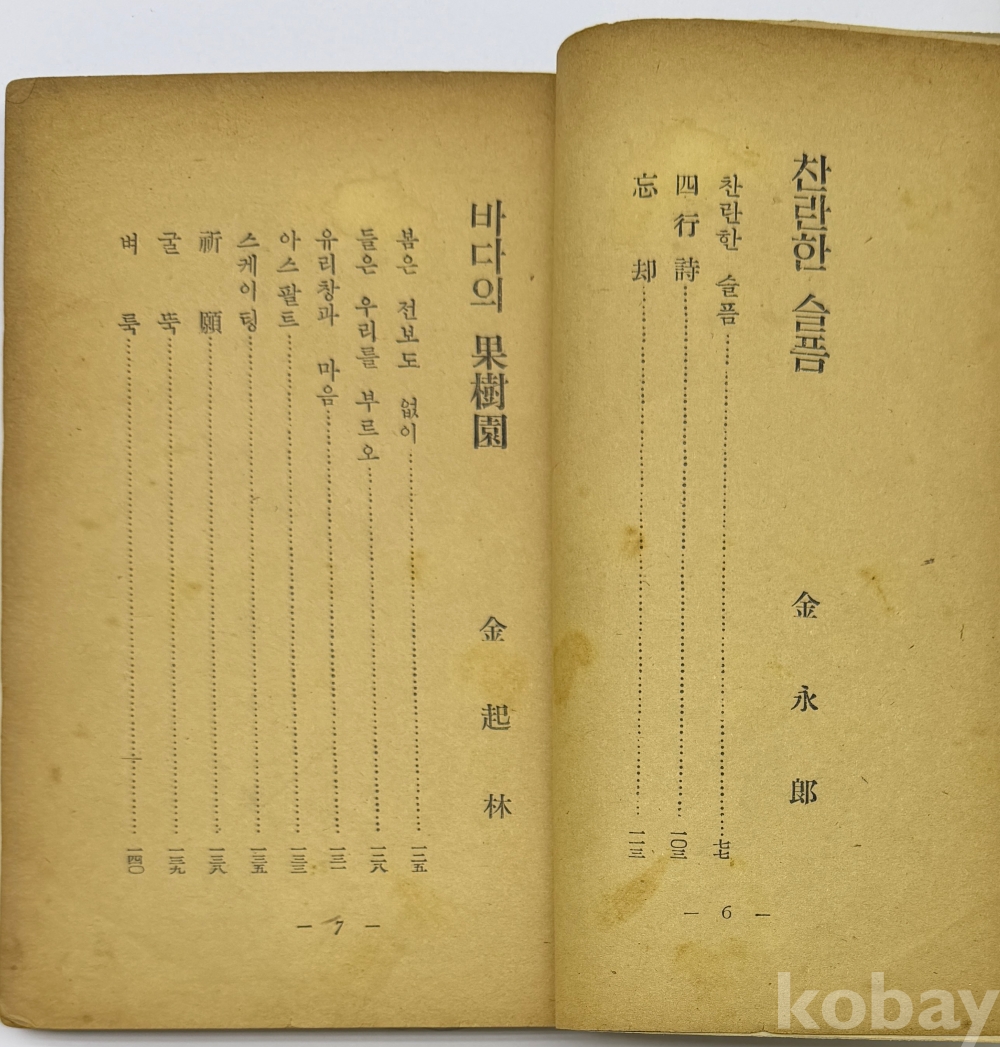 찬란한 슬픔
金永郎
찬란한 슬픔……七七
四行詩……一〇三
忘却……一一三
— 6 —
바다의 果樹園
金起林
봄은 전보도 없이……一二五
들은 우리를 부르오……一二八
유리창과 마음……一三一
아스팔트……一三三
스케이팅……一三五
祈願……一三八
굴뚝……一三九
벼룩……一四〇
— 7 —
kobay